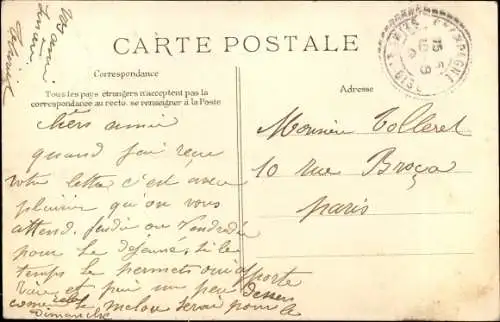 Vos amis
CARTE POSTALE
Correspondance
Tous les pays étrangers n'acceptent pas la
correspondance au recto. se renseigner à la Poste
Adresse
Chers amis
quand j'ai reçu
votre lettre c'est avec
plaisir qu'on vous
attend. jeudi ou Vendredi
pour le déjeuné, si le
temps le permets oui
rien et puis un peu
comme le melon serai pour
Dimanche
Monsieur Tolleret
10 rue Broça
Paris